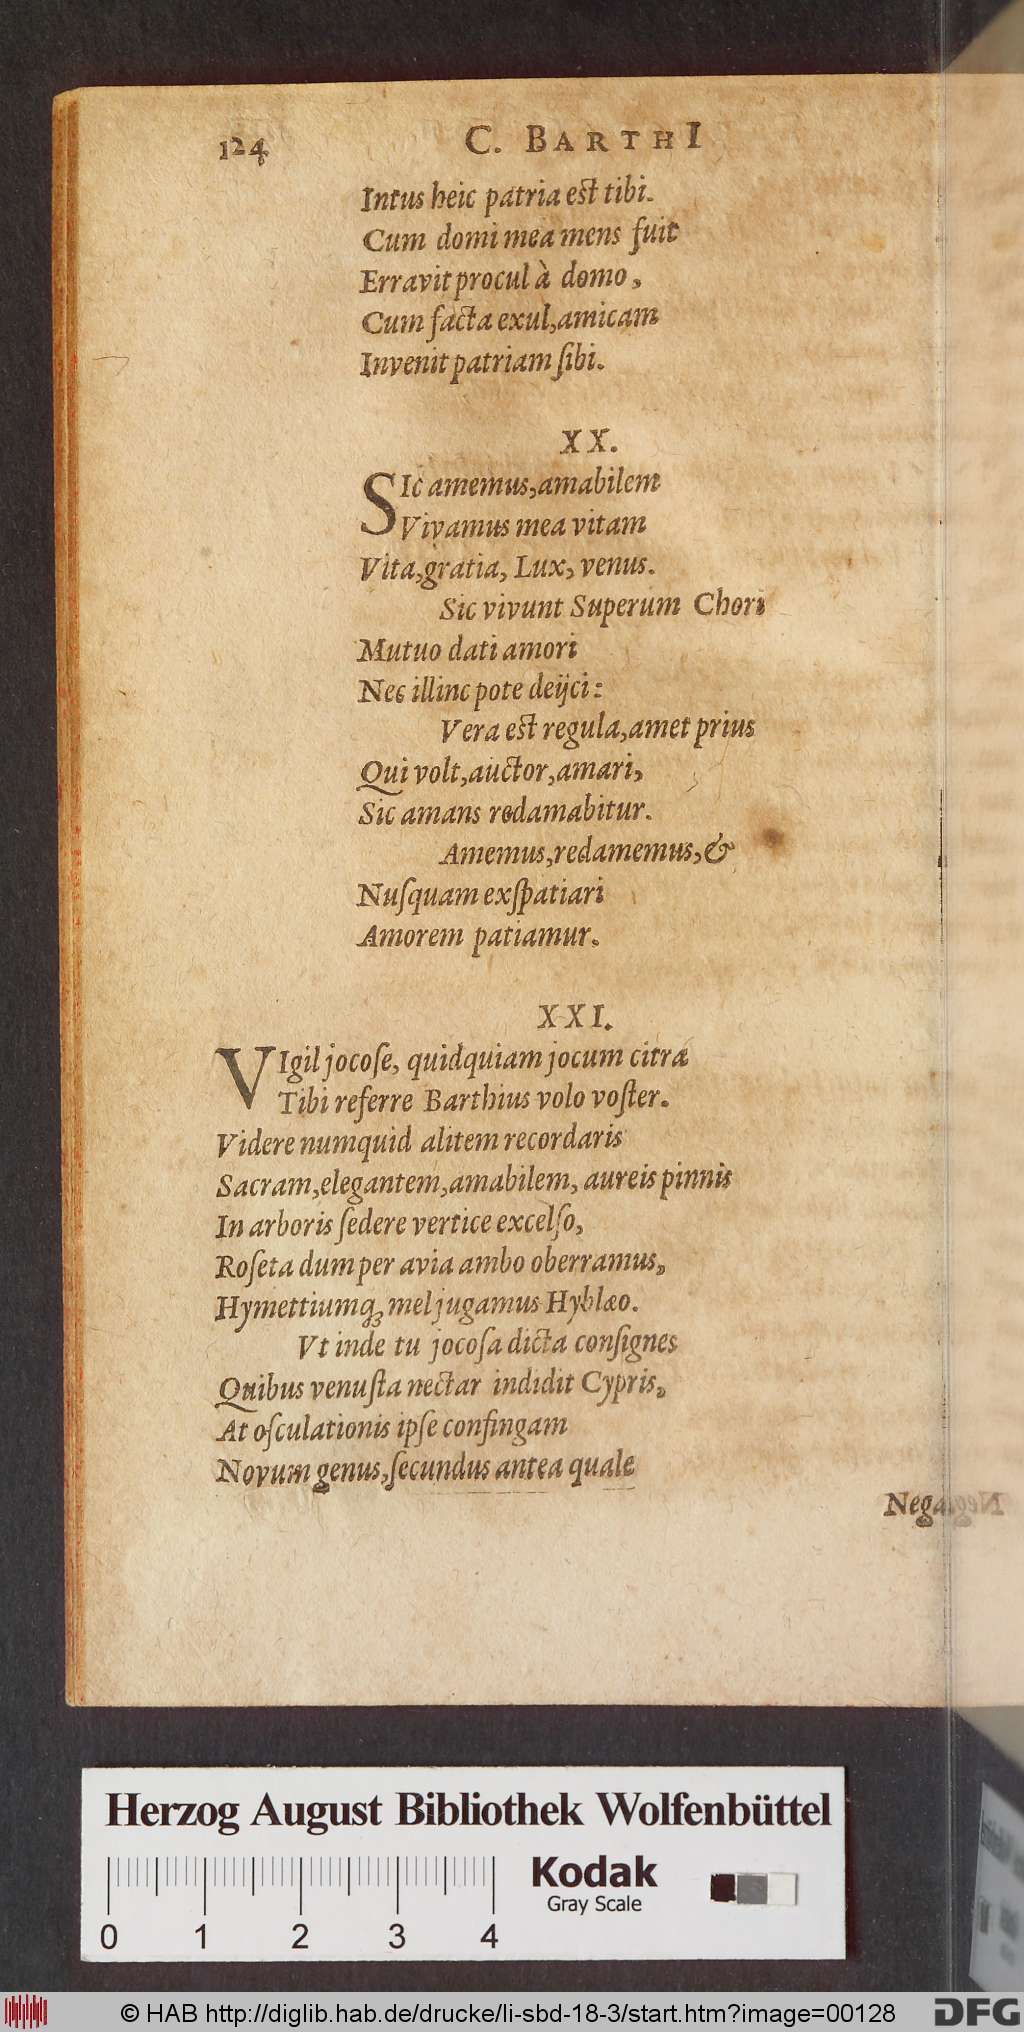 124 C. BARTHI
Intus heic patria est tibi.
Cum domi mea mens fuit
Erravit procul à domo,
Cum facta exul, amicam
Invenit patriam ſibi.
XX.
SIc amemus, amabilem
Vivamus mea vitam
Vita, gratia, Lux, venus.
Sic vivunt Superûm Chori
Mutuo dati amori
Nec illinc pote deijci:
Vera est regula, amet prius
Qui volt, auctor, amari,
Sic amans redamabitur.
Amemus, redamemus, &
Nuſquam exſpatiari
Amorem patiamur.
XXI.
VIgil jocoſe, quidquiam jocum citræ
Tibi referre Barthius volo voſter.
Videre numquid alitem recordaris
Sacram, elegantem, amabilem, aureis pinnis
In arboris ſedere vertice excelſo,
Roſeta dum per avia ambo oberramus,
Hymettiumq; mel jugamus Hyblæo.
Vt inde tu jocoſa dicta conſignes
Quibus venuſta nectar indidit Cypris,
At oſculationis ipſe confingam
Novum genus, ſecundus antea quale
Nega-
Herzog August Bibliothek Wolfenbüttel
Kodak
Gray Scale
0 1 2 3 4
© HAB http://diglib.hab.de/drucke/li-sbd-18-3/start.htm?image=00128 DFG